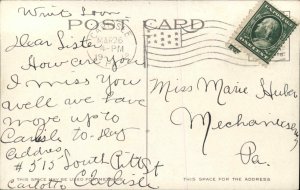 Writ Soon
POST CARD
Dear Sister
MAR 26
How are you
I miss You
well we have
move up to
Carlisle to-day
address
# 513 South Pitt St
Carlisle
Miss Marie Huber
Mechanicsg.
Pa.
THIS SPACE MAY BE USED FOR MESSAGE
THIS SPACE FOR THE ADDRESS